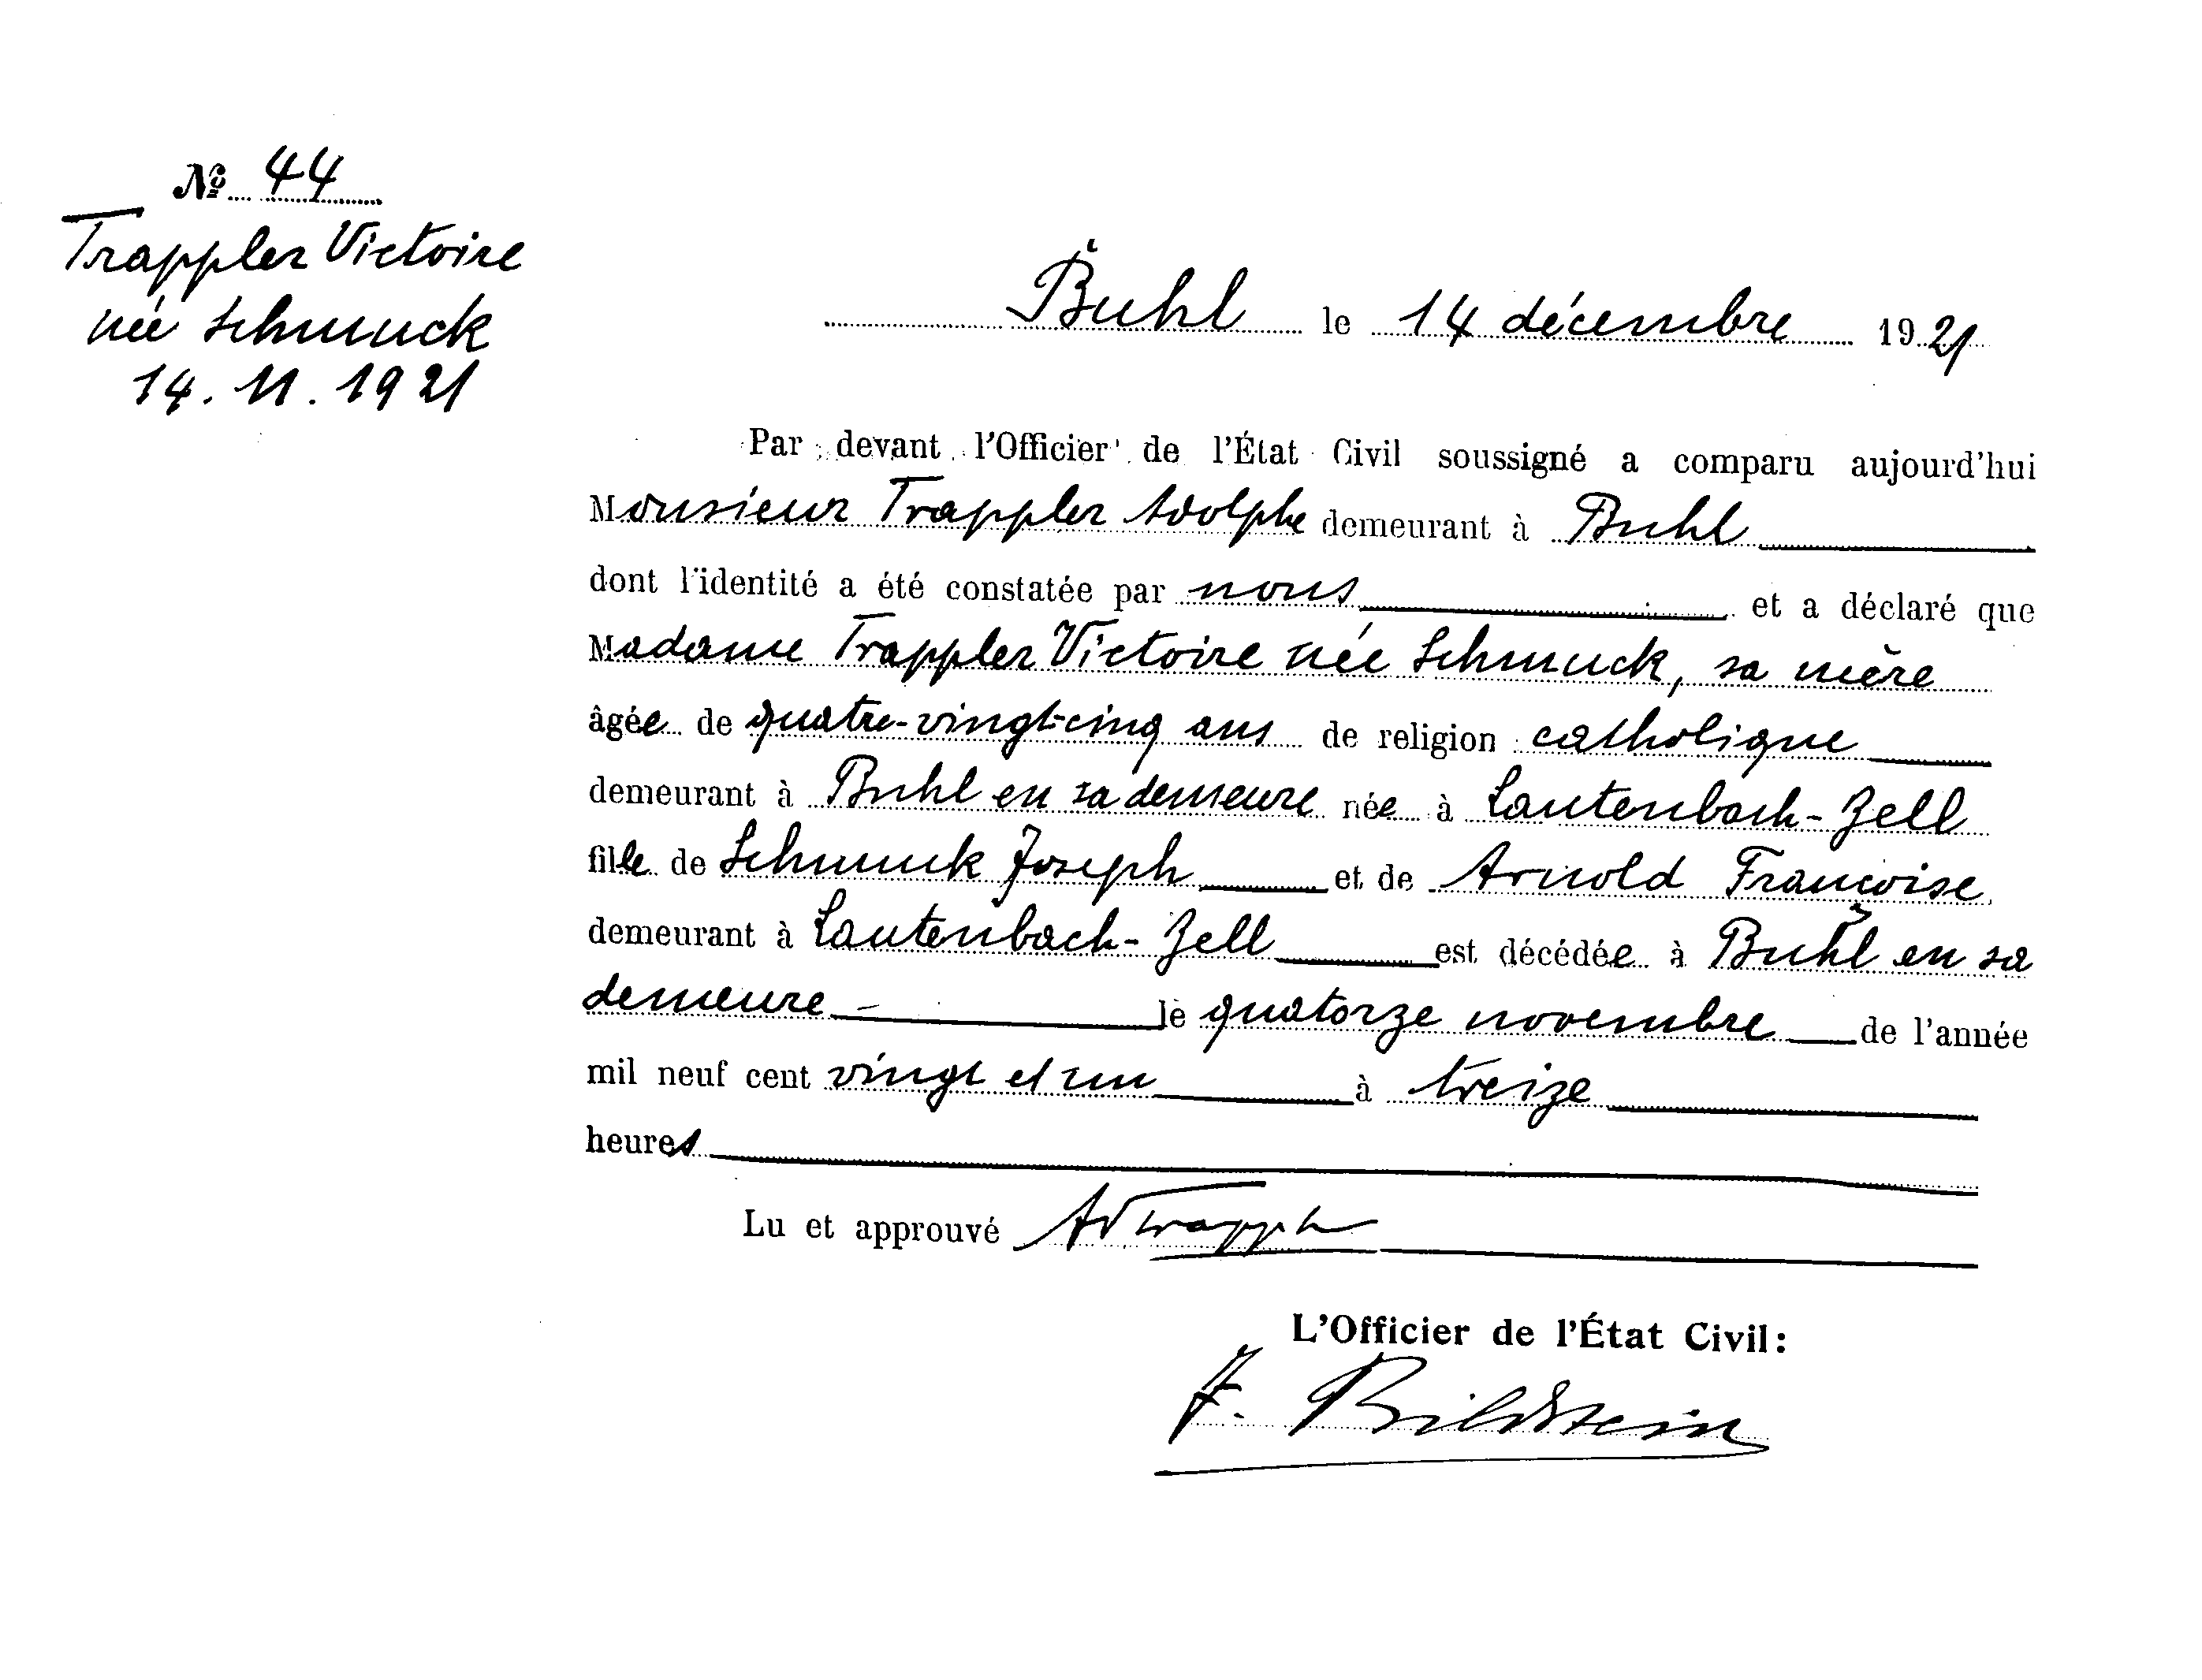 № 44
Trappler Victoire
née Schmuck
14.11.1921
Buhl le 14 décembre 1921
Par devant l'Officier de l'État Civil soussigné a comparu aujourd'hui
Monsieur Trappler Adolphe demeurant à Buhl
dont l'identité a été constatée par nous et a déclaré que
Madame Trappler Victoire née Schmuck, sa mère
âgée de quatre-vingt-cinq ans de religion catholique
demeurant à Buhl en sa demeure née à Lautenbach-Zell
fille de Schmuck Joseph et de Arnold Francoise
demeurant à Lautenbach-Zell est décédée à Buhl en sa
demeure le quatorze novembre de l'année
mil neuf cent vingt et un à treize
heures
Lu et approuvé Ad Trappler
L'Officier de l'État Civil:
F. Bildstein